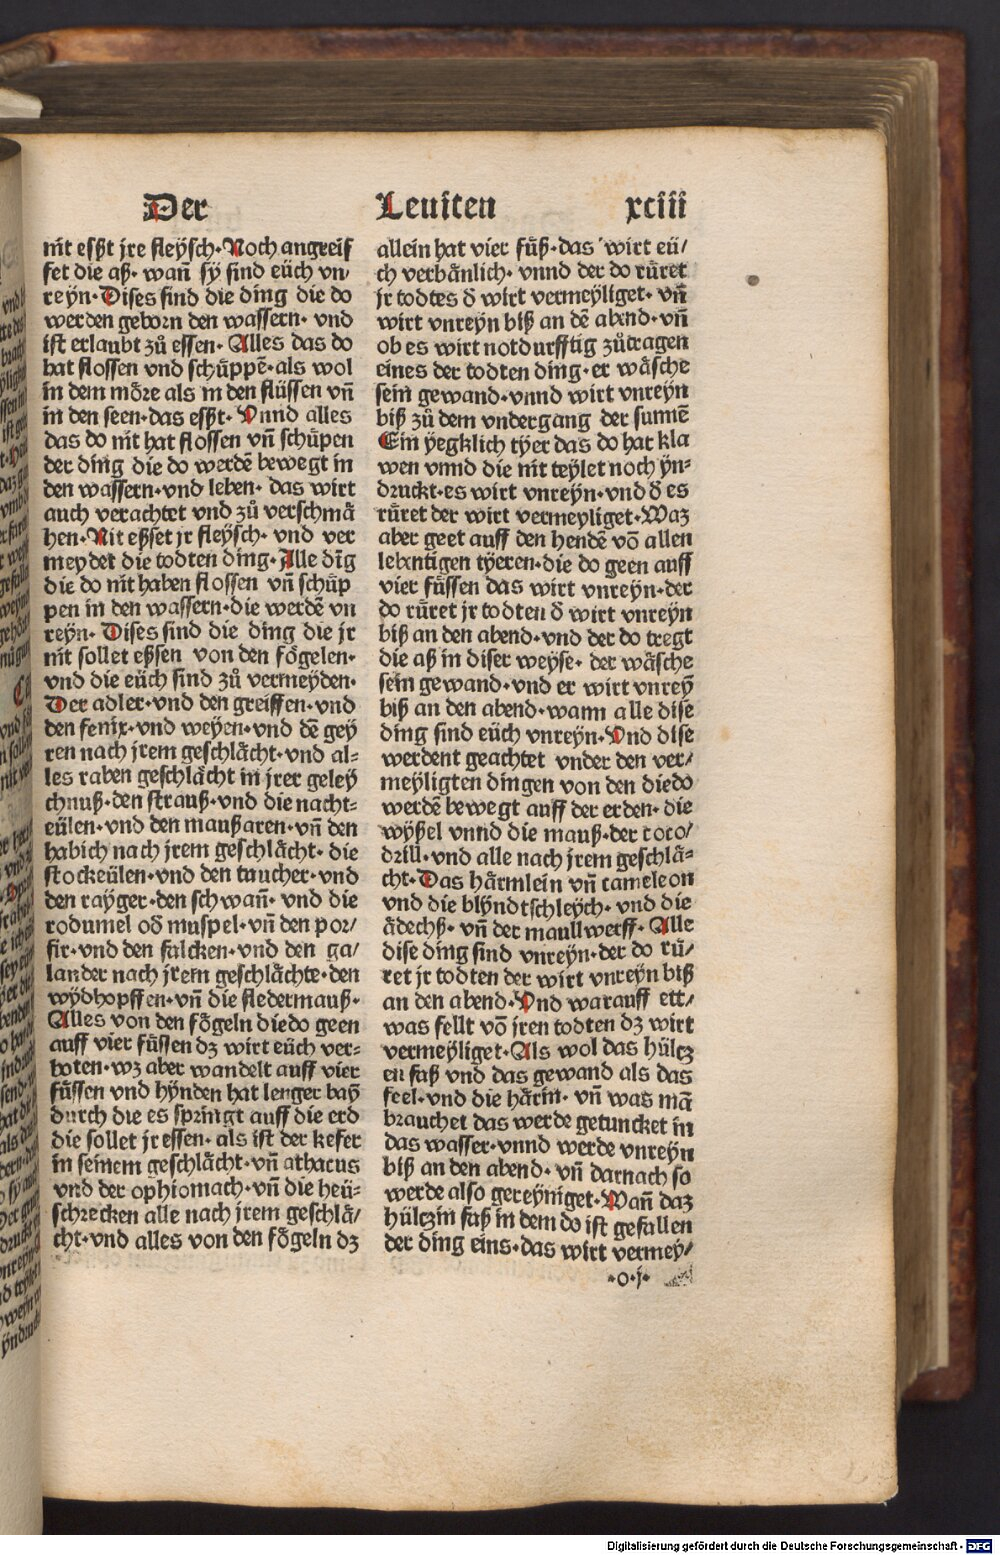 Der
Leuiten
xciii
nit eßßt jre fleÿsch· Noch angreif
fet die aß· wañ sÿ sind eüch vn/
reÿn· Dises sind die ding die do
werden geborn den wassern· vnd
ist erlaubt zů essen· Alles das do
hat flossen vnd schüppē· als wol
in dem möre als in den flüssen vñ
in den seen· das eßßt· Vnnd alles
das do nit hat flossen vñ schüpen
der ding die do werdē bewegt in
den wassern· vnd leben· das wirt
auch verachtet vnd zů verschmä
hen· Nit eßset jr fleÿsch· vnd ver
meydet die todten ding· Alle dīg
die do nit haben flossen vñ schüp
pen in den wassern· die werdē vn
reÿn· Dises sind die ding die jr
nit sollet eßsen von den fögelen·
vnd die eüch sind zů vermeyden·
Der adler· vnd den greiffen· vnd
den fenix· vnd weÿen· vnd dē geÿ
ren nach jrem geschlächt· vnd al⸗
les raben geschlächt in jrer geleÿ
chnuß· den strauß· vnd die nacht⸗
eülen· vnd den maußaren· vñ den
habich nach jrem geschlächt· die
stockeülen· vnd den taucher· vnd
den raÿger· den schwañ· vnd die
rodumel od̄ muspel· vñ den por/
fir· vnd den falcken· vnd den ga/
lander nach jrem geschlächte· den
wÿdhopffen· vñ die fledermauß·
Alles von den fögeln diedo geen
auff vier füssen dz wirt eüch ver⸗
boten· wz aber wandelt auff vier
füssen vnd hÿnden hat lenger baÿ
durch die es springt auff die erd
die sollet jr essen· als ist der kefer
in seinem geschlächt· vñ athacus
vnd der ophiomach· vñ die heü⸗
schrecken alle nach jrem geschlä/
cht· vnd alles von den fögeln dz
allein hat vier füß· das wirt eü/
ch verbänlich· vnnd der do rüret
jr todtes d̄ wirt vermeyliget· vñ
wirt vnreÿn biß an dē abend· vñ
ob es wirt notdurfftig zůtragen
eines der todten ding· er wäsche
sein gewand· vnnd wirt vnreÿn
biß zů dem vndergang der sunnē
Ein ÿegklich tÿer das do hat kla
wen vnnd die nit teÿlet noch ÿn⸗
druckt· es wirt vnreÿn· vnd d̄ es
rüret der wirt vermeyliget· Waz
aber geet auff den hendē vō allen
lebentigen tÿeren· die do geen auff
vier füssen das wirt vnreÿn· der
do rüret jr todten d̄ wirt vnreÿn
biß an den abend· vnd der do tregt
die aß in diser weyse· der wäsche
sein gewand· vnd er wirt vnreÿ
biß an den abend· wann alle dise
ding sind eüch vnreÿn· Vnd dise
werdent geachtet vnder den ver/
meÿligten dingen von den diedo
werdē bewegt auff der erden· die
wÿßel vnnd die mauß· der coco/
drill· vnd alle nach jrem geschlä⸗
cht· Das härmlein vñ cameleon
vnd die blÿndtschleÿch· vnd die
ädechß· vñ der maullwerff· Alle
dise ding sind vnreÿn· der do rü/
ret jr todten der wirt vnreÿn biß
an den abend· Vnd warauff ett/
was fellt vō jren todten dz wirt
vermeÿliget· Als wol das hültz
en faß vnd das gewand als das
feel· vnd die härin· vñ was mā
brauchet das werde getuncket in
das wasser· vnnd werde vnreÿn
biß an den abend· vñ darnach so
werde also gereÿniget· Wañ daz
hültzin faß in dem do ist gefallen
der ding eins· das wirt vermeÿ/
·o·j·
Digitalisierung gefördert durch die Deutsche Forschungsgemeinschaft - DFG